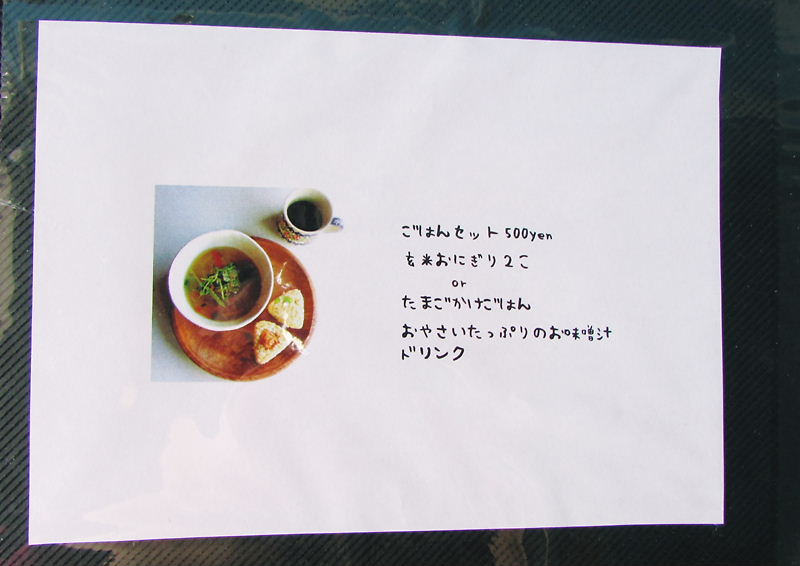 ごはんセット 500yen
玄米おにぎり2こ
or
たまごかけごはん
おやさいたっぷりのお味噌汁
ドリンク